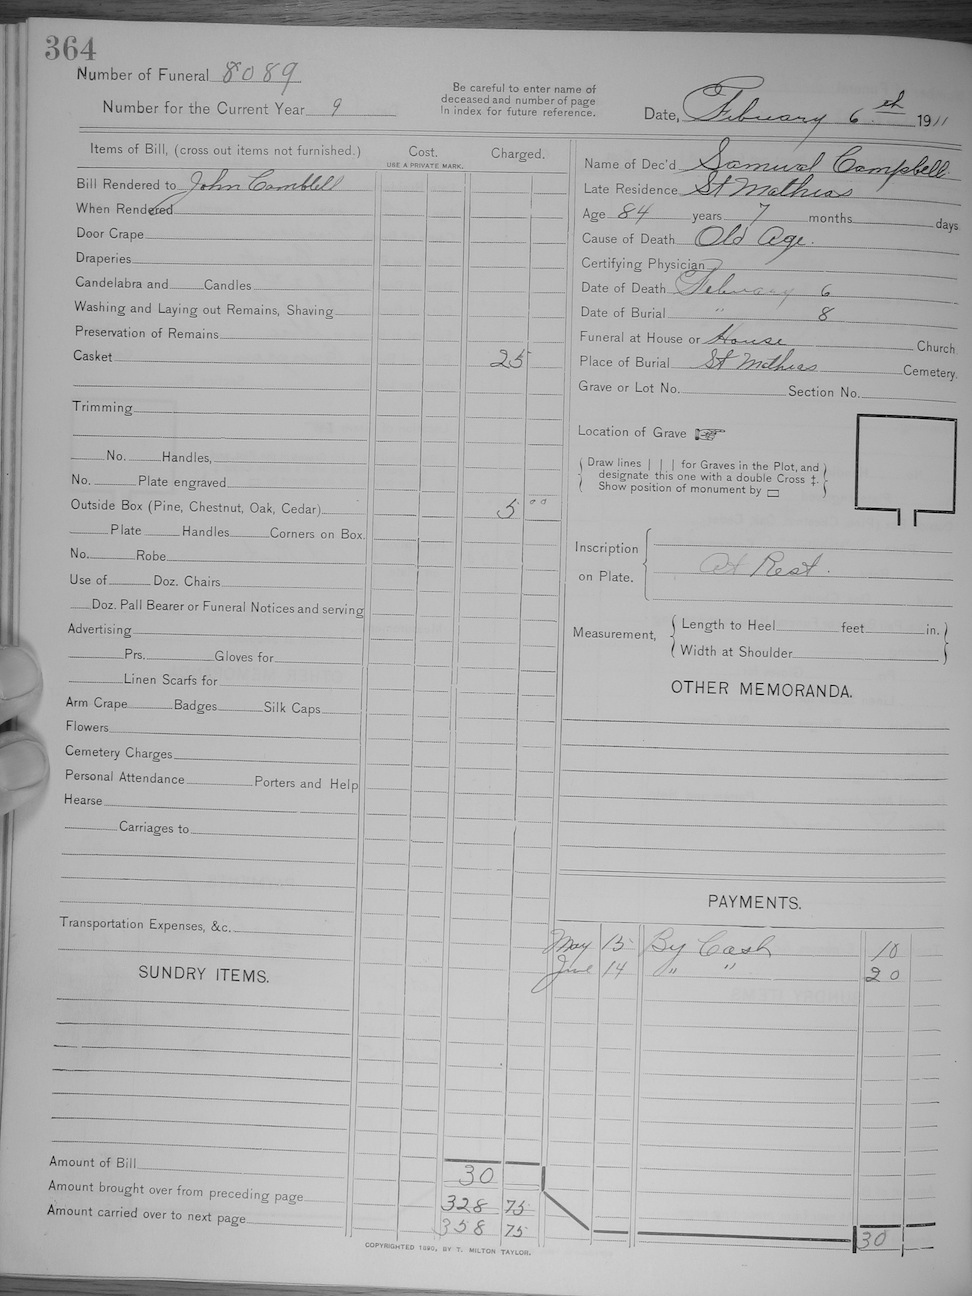 364
Number of Funeral 8089
Number for the Current Year 9
Be careful to enter name of
deceased and number of page
in index for future reference.
Date, February 6th 1911
Items of Bill, (cross out items not furnished.)
Cost.
USE A PRIVATE MARK.
Charged.
Bill Rendered to John Cambbell
When Rendered
Door Crape
Draperies
Candelabra and Candles
Washing and Laying out Remains, Shaving
Preservation of Remains
Casket 25
Trimming
No. Handles,
No. Plate engraved
Outside Box (Pine, Chestnut, Oak, Cedar) 5 00
Plate Handles Corners on Box.
No. Robe
Use of Doz. Chairs
Doz. Pall Bearer or Funeral Notices and serving
Advertising
Prs. Gloves for
Linen Scarfs for
Arm Crape Badges Silk Caps
Flowers
Cemetery Charges
Personal Attendance Porters and Help
Hearse
Carriages to
Transportation Expenses, &c.
SUNDRY ITEMS.
Amount of Bill 30
Amount brought over from preceding page 328 75
Amount carried over to next page 358 75
Name of Dec'd Samuel Campbell
Late Residence St Mathias
Age 84 years 7 months days
Cause of Death Old Age.
Certifying Physician
Date of Death February 6
Date of Burial " 8
Funeral at House or House Church
Place of Burial St Mathias Cemetery.
Grave or Lot No. Section No.
Location of Grave
Draw lines | | | for Graves in the Plot, and
designate this one with a double Cross ‡.
Show position of monument by ▭
Inscription
on Plate.
At Rest.
Measurement,
Length to Heel feet in.
Width at Shoulder
OTHER MEMORANDA.
PAYMENTS.
May 15 By Cash 10
June 14 " " 20
30
COPYRIGHTED 1890, BY T. MILTON TAYLOR.